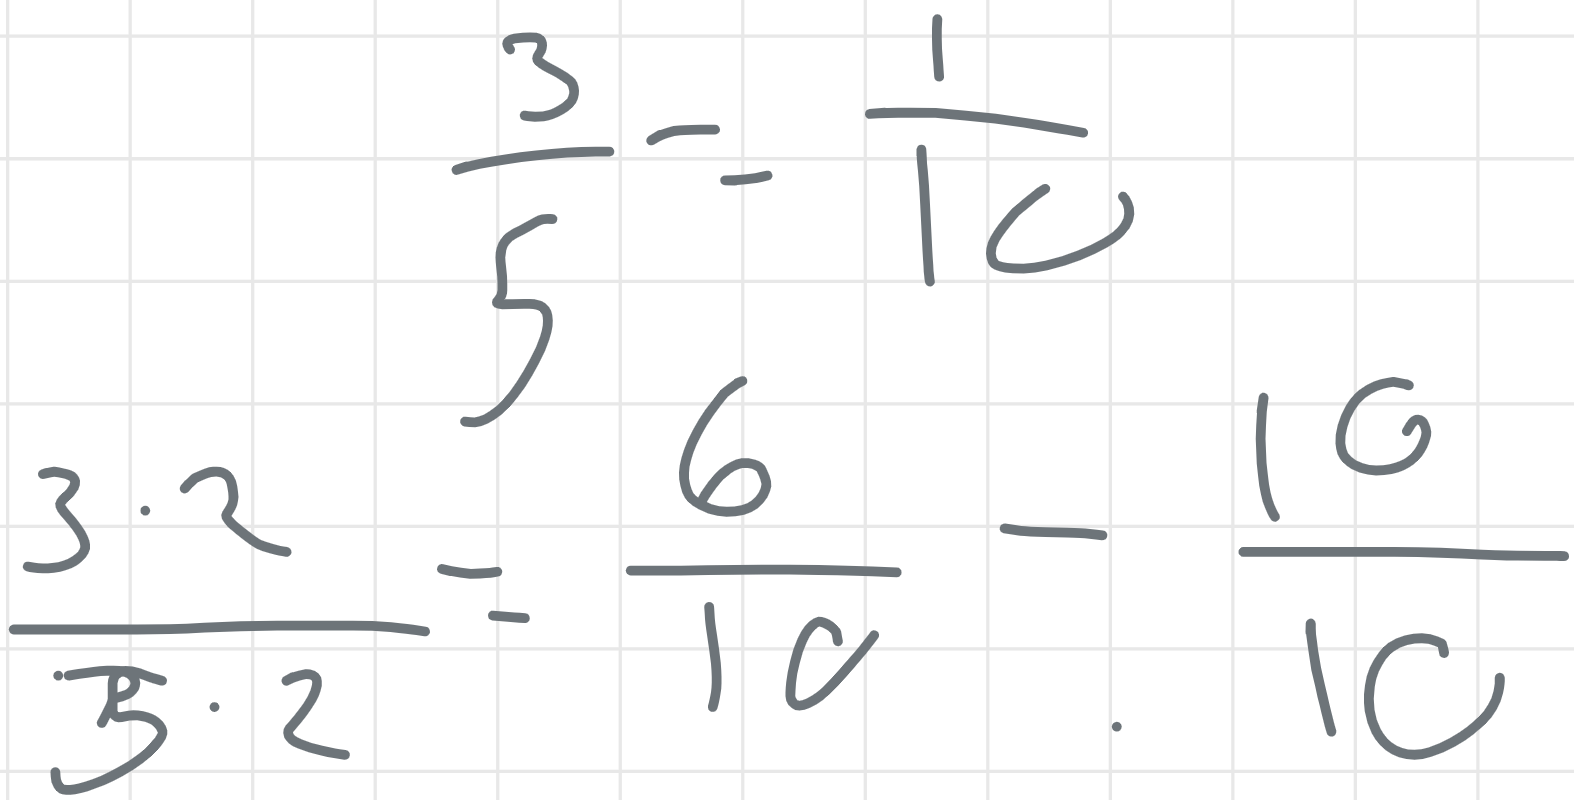 3/5 = 1/10
3·2/5·2 = 6/10 - 10/10